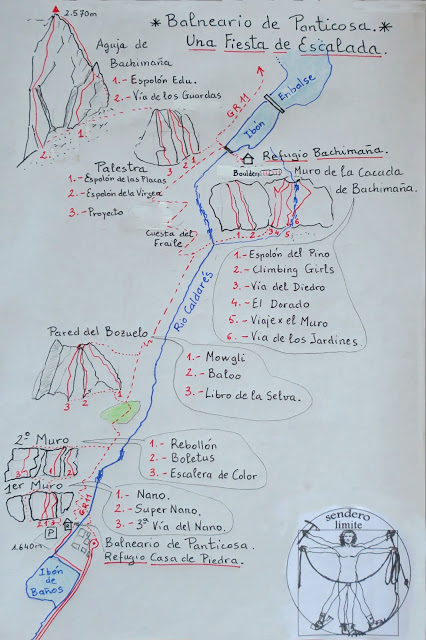 *Balneario de Panticosa.*
Una Fiesta de Escalada.
2.570m
Aguja de
Bachimaña
1.- Espolón Edu.
2.- Vía de los Guardas
1
2
GR11
Embalse
Ibón
Refugio Bachimaña.
Boulder
Muro de la Cacada
de Bachimaña.
3 2 1
Palestra
1.- Espolón de las Placas
2.- Espolón de la Virgen
3.- Proyecto
Cuesta del
Fraile
1 2 3 4 5 6
1.- Espolón del Pino
2.- Climbing Girls
3.- Vía del Diedro
4.- El Dorado
5.- Viaje x el Muro
6.- Vía de los Jardines
Río Caldarés
Pared del Bozuelo
3 2 1
1.- Mowgli
2.- Baloo
3.- Libro de la Selva.
2º Muro
3 2 1
1.- Rebollón
2.- Boletus
3.- Escalera de Color
1er Muro
2 1 3
GR11
1.- Nano.
2.- Super Nano.
3.- 3ª Vía del Nano.
P
R
1.640m
Balneario de Panticosa.
Refugio Casa de Piedra.
Ibón
de
Baños
sendero
límite